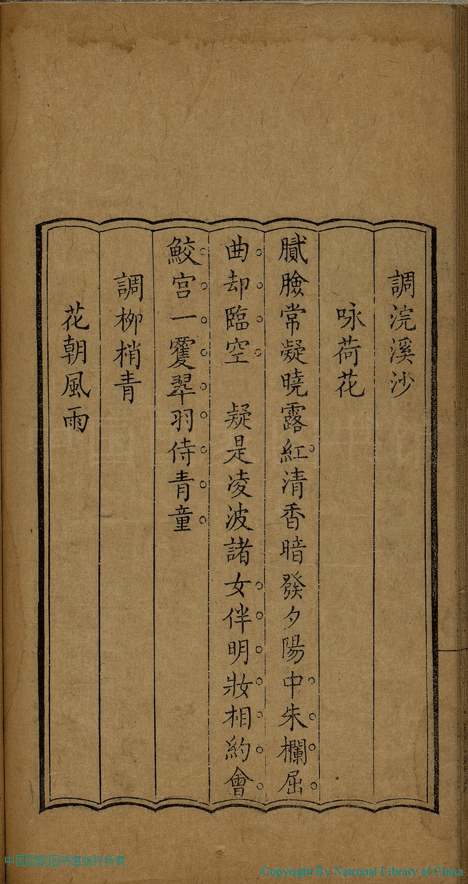 調浣溪沙
咏荷花
膩臉常凝曉露紅清香暗發夕陽中朱欄屈
曲却臨空　疑是凌波諸女伴明妝相約會
鮫宮一䨇翆羽侍青童
調柳梢青
花朝風雨
Copyright By National Library of China